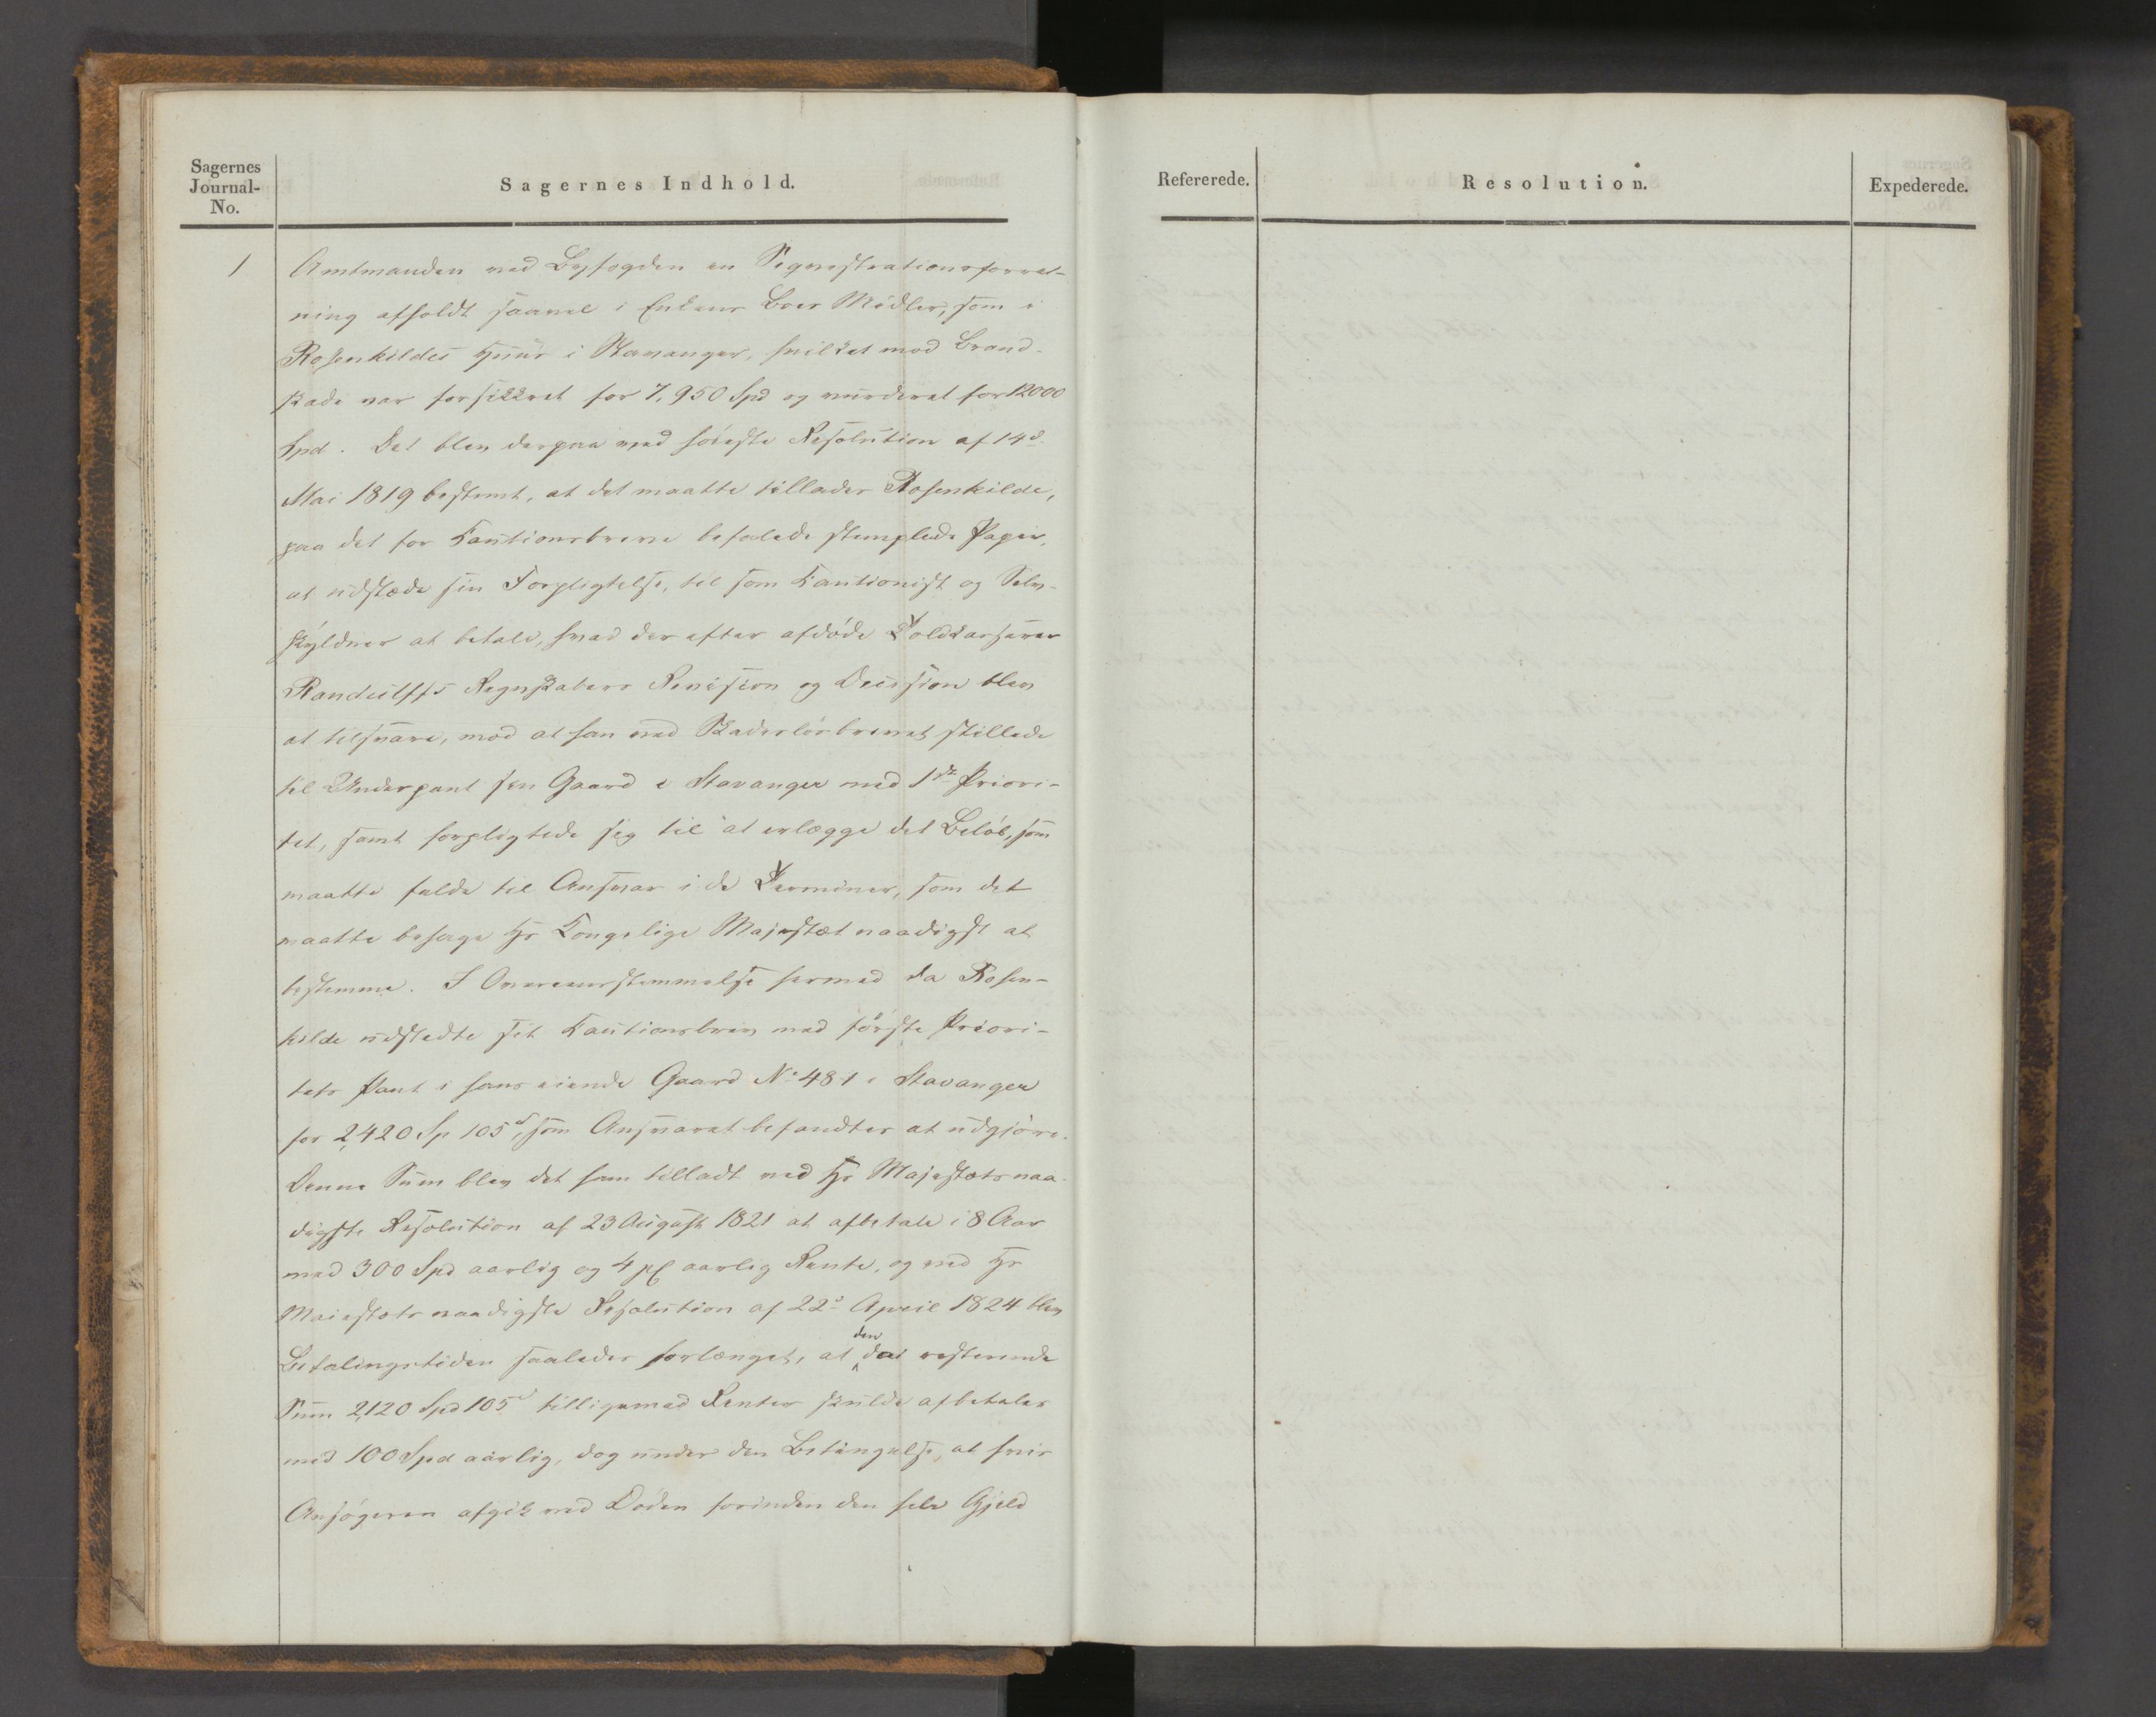 Sagernes
Journal-
No.
Sagernes Indhold.
Refererede.
Resolution.
Expederede.
1
Amtmanden ved Byfogden en Seqvestrationsforret-
ning afholdt saavel i Enkens Boes Midler, som i
Rosenkildes Huus i Stavanger, hvilket mod Brand-
skade var forsikkret for 7,950 Spd og vurderet for 12000
Spd. Det blev derpaa ved høieste Resolution af 14d
Mai 1819 bestemt, at det maatte tillades Rosenkilde,
paa det for Kautionsbreve befalede stemplede Papir,
at udstæde sin Forpligtelse, til som Kautionist og Selv-
skyldner at betale, hvad der efter afdøde Toldkasserer
Randulffs Regnskabers Revision og Decision blev
at tilsvare, mod at han ved Skadesløsbrevet stillede
til Underpant sin Gaard i Stavanger med 1ste Priori-
tet, samt forpligtede sig til at erlægge det Beløb, som
maatte falde til Ansvar i de Terminer, som det
maatte behage Hs Kongelige Majestæt naadigst at
bestemme. I Overeensstemmelse hermed da Rosen-
kilde udstedte sit Kautionsbrev med første Priori-
tets Pant i hans eiende Gaard No 481 i Stavanger
for 2,420 Sp 105s, som Ansvaret befandtes at udgjøre.
Denne Sum blev det ham tilladt ved Hs Majestæts naa-
digste Resolution af 23 August 1821 at afbetale i 8 Aar
med 300 Spd aarlig og 4 pC aarlig Rente, og ved Hs
Majestæts naadigste Resolution af 22d April 1824 blev
Betalingstiden saaledes forlænget, at den resterende
Sum 2,120 Spd 105s tilligemed Renter skulde afbetales
med 100 Spd aarlig, dog under den Betingelse, at hvis
Ansøgeren afgik ved Døden forinden den hele Gjeld